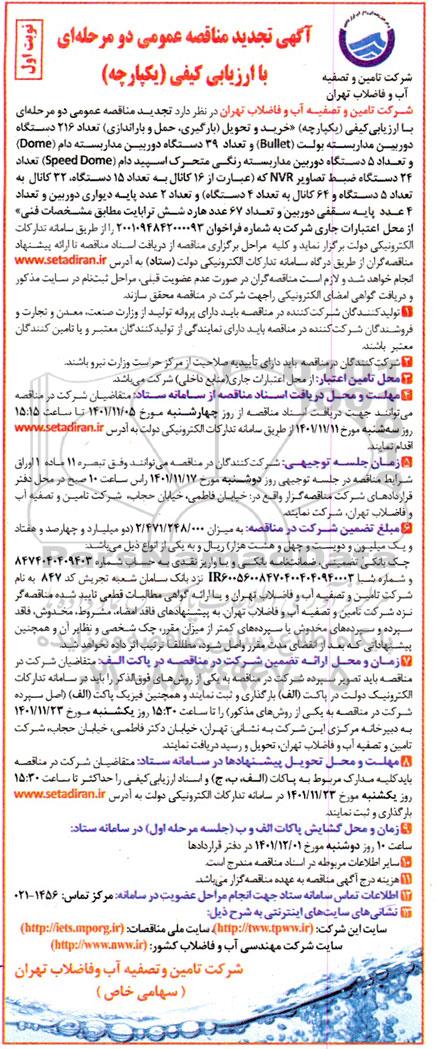 نوبت اول
آگهی تجدید مناقصه عمومی دو مرحله‌ای
با ارزیابی کیفی (یکپارچه)
شرکت تامین و تصفیه
آب و فاضلاب تهران
شرکت تامین و تصفیه آب و فاضلاب تهران در نظر دارد تجدید مناقصه عمومی دو مرحله‌ای
با ارزیابی کیفی (یکپارچه) «خرید و تحویل (بارگیری، حمل و باراندازی) تعداد ۲۱۶ دستگاه
دوربین مداربسته بولت (Bullet) و تعداد ۳۹ دستگاه دوربین مداربسته دام (Dome)
و تعداد ۵ دستگاه دوربین مداربسته رنگی متحرک اسپید دام (Speed Dome) تعداد
۲۴ دستگاه ضبط تصاویر NVR که (عبارت از ۱۶ کانال به تعداد ۱۵ دستگاه، ۳۲ کانال به
تعداد ۵ دستگاه و ۶۴ کانال به تعداد ۴ دستگاه) و تعداد ۲ عدد پایه دیواری دوربین و تعداد
۴ عدد پایه سقفی دوربین و تعداد ۶۷ عدد هارد شش ترابایت مطابق مشخصات فنی»
از محل اعتبارات جاری شرکت به شماره فراخوان ۲۰۰۱۰۹۴۸۴۲۰۰۰۰۹۳ را از طریق سامانه تدارکات
الکترونیکی دولت برگزار نماید و کلیه مراحل برگزاری مناقصه از دریافت اسناد مناقصه تا ارائه پیشنهاد
مناقصه‌گران از طریق درگاه سامانه تدارکات الکترونیکی دولت (ستاد) به آدرس www.setadiran.ir
انجام خواهد شد و لازم است مناقصه‌گران در صورت عدم عضویت قبلی، مراحل ثبت‌نام در سایت مذکور
و دریافت گواهی امضای الکترونیکی را جهت شرکت در مناقصه محقق سازند.
۱ تولیدکنندگان شرکت‌کننده در مناقصه باید دارای پروانه تولید از وزارت صنعت، معدن و تجارت و
فروشندگان شرکت‌کننده در مناقصه باید دارای نمایندگی از تولیدکنندگان معتبر و یا تامین کنندگان
معتبر باشند.
۲ شرکت‌کنندگان در مناقصه باید دارای تأییدیه صلاحیت از مرکز حراست وزارت نیرو باشند.
۳ محل تامین اعتبار: از محل اعتبارات جاری (منابع داخلی) شرکت می‌باشد.
۴ مهلت و محل دریافت اسناد مناقصه از سامانه ستاد: متقاضیان شرکت در مناقصه
می‌توانند جهت دریافت اسناد مناقصه از روز چهارشنبه مورخ ۱۴۰۱/۱۱/۰۵ تا ساعت ۱۵:۱۵
روز سه‌شنبه مورخ ۱۴۰۱/۱۱/۱۱ از طریق سامانه تدارکات الکترونیکی دولت به آدرس www.setadiran.ir
اقدام نمایند.
۵ زمان جلسه توجیهی: شرکت‌کنندگان در مناقصه می‌توانند وفق تبصره ۱۱ ماده ۱ اوراق
شرایط مناقصه در جلسه توجیهی روز دوشنبه مورخ ۱۴۰۱/۱۱/۱۷ راس ساعت ۱۰ صبح در محل دفتر
قراردادهای شرکت مناقصه‌گزار واقع در: خیابان فاطمی، خیابان حجاب، شرکت تامین و تصفیه آب
و فاضلاب تهران، شرکت نمایند.
۶ مبلغ تضمین شرکت در مناقصه: به میزان ۲/۴۷۱/۲۴۸/۰۰۰ (دو میلیارد و چهارصد و هفتاد
و یک میلیون و دویست و چهل و هشت هزار) ریال و به یکی از انواع ذیل می‌باشد:
چک بانکی تضمینی، ضمانتنامه بانکی و یا واریز نقدی به حساب شماره ۸۴۷۴۰۴۰۴۰۹۴۰۳
و شماره شبا IR۶۰۰۵۶۰۰۸۴۷۰۴۰۰۴۰۴۰۹۴۰۰۳ نزد بانک سامان شعبه تجریش کد ۸۴۷ به نام
شرکت تامین و تصفیه آب و فاضلاب تهران و یا ارائه گواهی مطالبات قطعی تایید شده مناقصه‌گر
نزد شرکت تامین و تصفیه آب و فاضلاب تهران. به پیشنهادهای فاقد امضاء، مشروط، مخدوش، فاقد
سپرده و سپرده‌های مخدوش یا سپرده‌های کمتر از میزان مقرر، چک شخصی و نظایر آن و همچنین
پیشنهاداتی که بعد از انقضای مدت مقرر واصل شود، مطلقاً ترتیب اثر داده نخواهد شد.
۷ زمان و محل ارائه تضمین شرکت در مناقصه در پاکت الف: متقاضیان شرکت در
مناقصه باید تصویر سپرده شرکت در مناقصه به یکی از روش‌های فوق‌الذکر را باید در سامانه تدارکات
الکترونیک دولت در پاکت (الف) بارگذاری و ثبت نمایند و همچنین فیزیک پاکت (الف) (اصل سپرده
شرکت در مناقصه به یکی از روش‌های مذکور) را تا ساعت ۱۵:۳۰ روز یکشنبه مورخ ۱۴۰۱/۱۱/۲۳
به دبیرخانه مرکزی این شرکت به نشانی: تهران، خیابان دکتر فاطمی، خیابان حجاب، شرکت
تامین و تصفیه آب و فاضلاب تهران، تحویل و رسید دریافت نمایند.
۸ مهلت و محل تحویل پیشنهادها در سامانه ستاد: متقاضیان شرکت در مناقصه
باید کلیه مدارک مربوط به پاکات (الف، ب، ج) و اسناد ارزیابی کیفی را حداکثر تا ساعت ۱۵:۳۰
روز یکشنبه مورخ ۱۴۰۱/۱۱/۲۳ در سامانه تدارکات الکترونیکی دولت به آدرس www.setadiran.ir
بارگذاری و ثبت نمایند.
۹ زمان و محل گشایش پاکات الف و ب (جلسه مرحله اول) در سامانه ستاد:
ساعت ۱۰ روز دوشنبه مورخ ۱۴۰۱/۱۲/۰۱ در دفتر قراردادها
۱۰ سایر اطلاعات مربوطه در اسناد مناقصه مندرج است.
۱۱ هزینه درج آگهی مناقصه به عهده مناقصه‌گزار می‌باشد.
۱۲ اطلاعات تماس سامانه ستاد جهت انجام مراحل عضویت در سامانه: مرکز تماس: ۱۴۵۶-۰۲۱
۱۳ نشانی‌های سایت‌های اینترنتی به شرح ذیل:
سایت این شرکت: (http://tww.tpww.ir)، سایت ملی مناقصات: (http://iets.mporg.ir)
سایت شرکت مهندسی آب و فاضلاب کشور: (http://www.nww.ir)
شرکت تامین و تصفیه آب وفاضلاب تهران
( سهامی خاص )